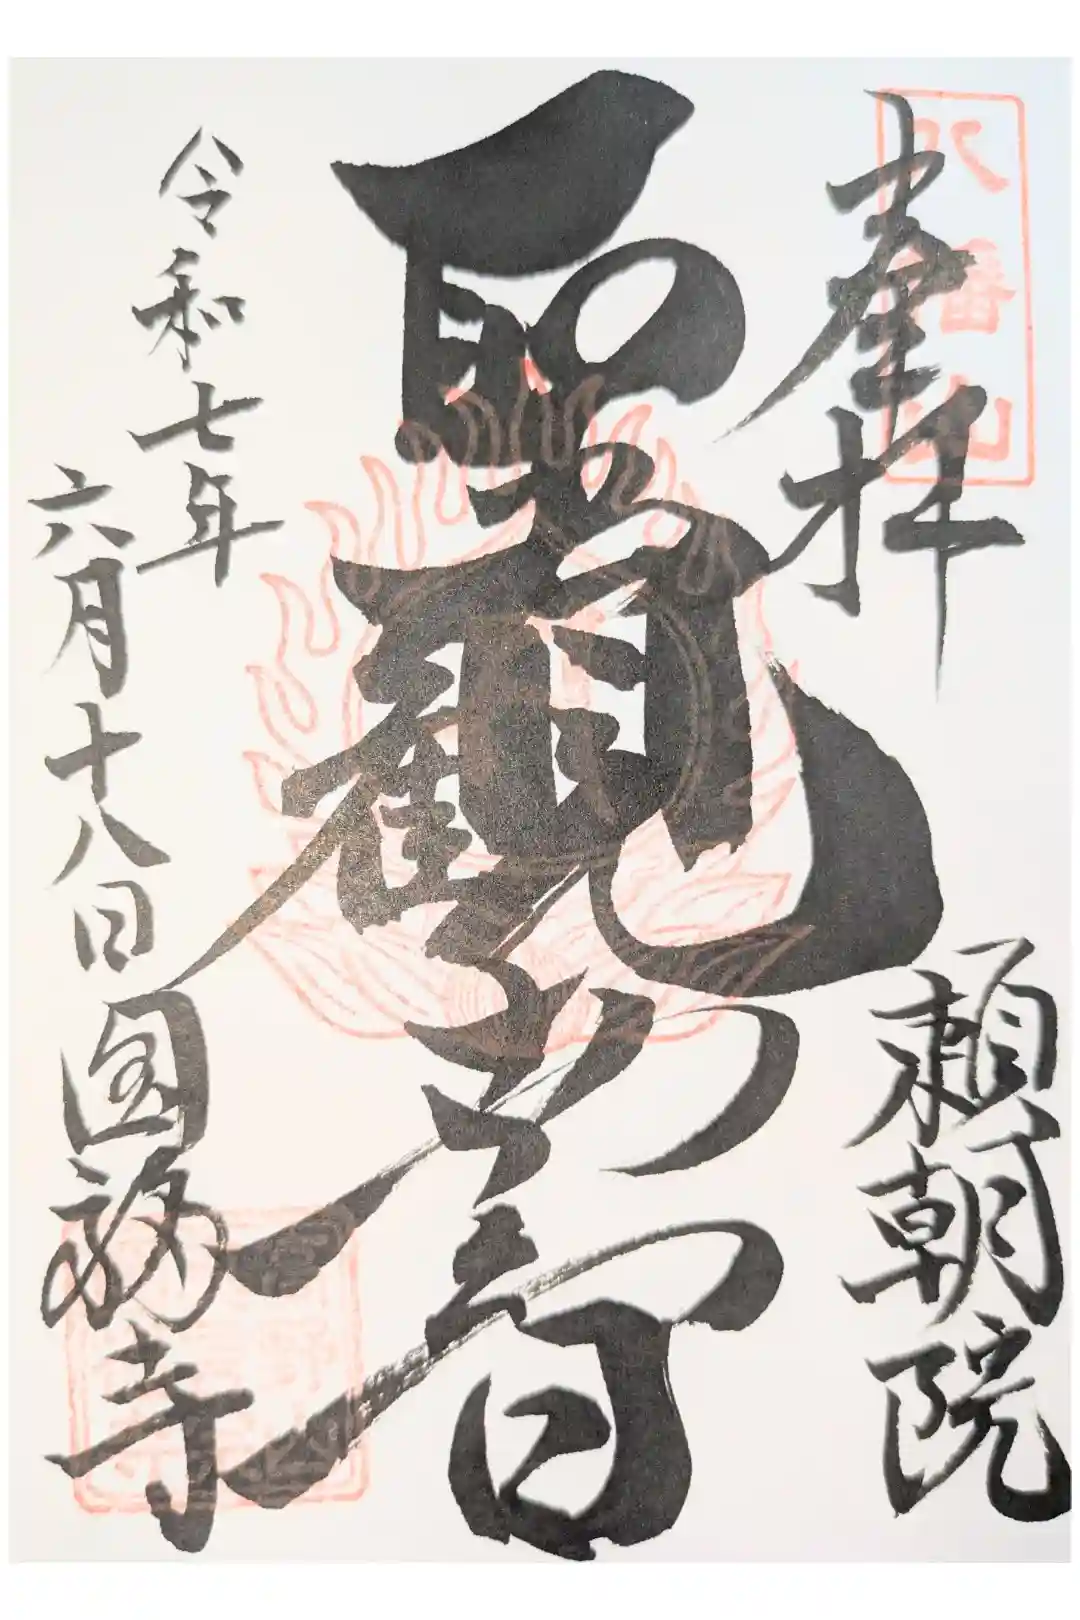 八幡山
奉拝
頼朝院
聖観世音
令和七年
六月十八日
圓福寺